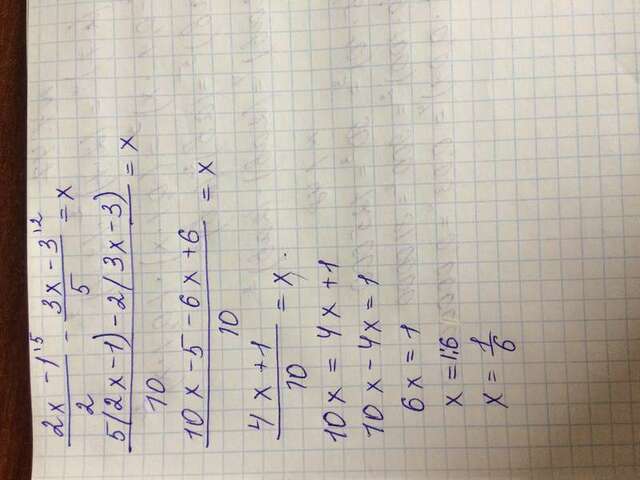 (2x - 1)^{·5}/2 - (3x - 3)^{·2}/5 = x
(5(2x - 1) - 2(3x - 3))/10 = x
(10x - 5 - 6x + 6)/10 = x
(4x + 1)/10 = x.
10x = 4x + 1
10x - 4x = 1
6x = 1
x = 1:6
x = 1/6